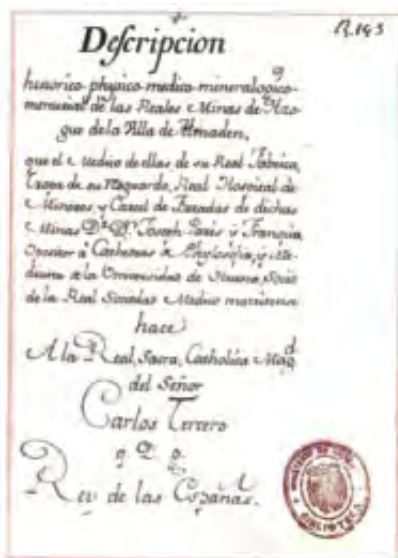 R.193
Descripcion
historico-physico-medico-mineralogico-
mercurial de las Reales Minas de Azo-
gue de la Villa de Almaden,
que el Medico de ellas de su Real Fabrica,
Tropa de su Resguardo, Real Hospital de
Mineros, y Carcel de Forzados de dichas
Minas Dn. Dr. Joseph Parés y Franqués
Opositor á Cathedras de Phylosofia, y Me-
dicina de la Universidad de Socio
de la Real Sociedad Medico matritense
hace
A la Real, Sacra, Catholica Magd
del Señor
Carlos Tercero
q. D. g.
Rey de las Españas.
BIBLIOTECA